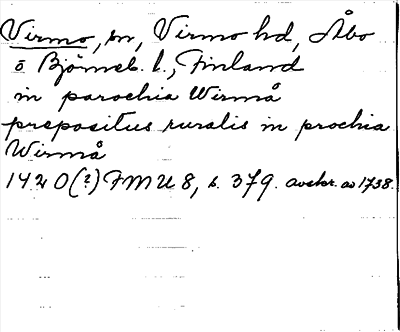 Virmo, sn, Virmo hd, Åbo
o Björneb. l., Finland
in parochia Wirmå
prepositus ruralis in prochia
Wirmå
1420(?) FMU 8, s. 379. avskr. av 1738.